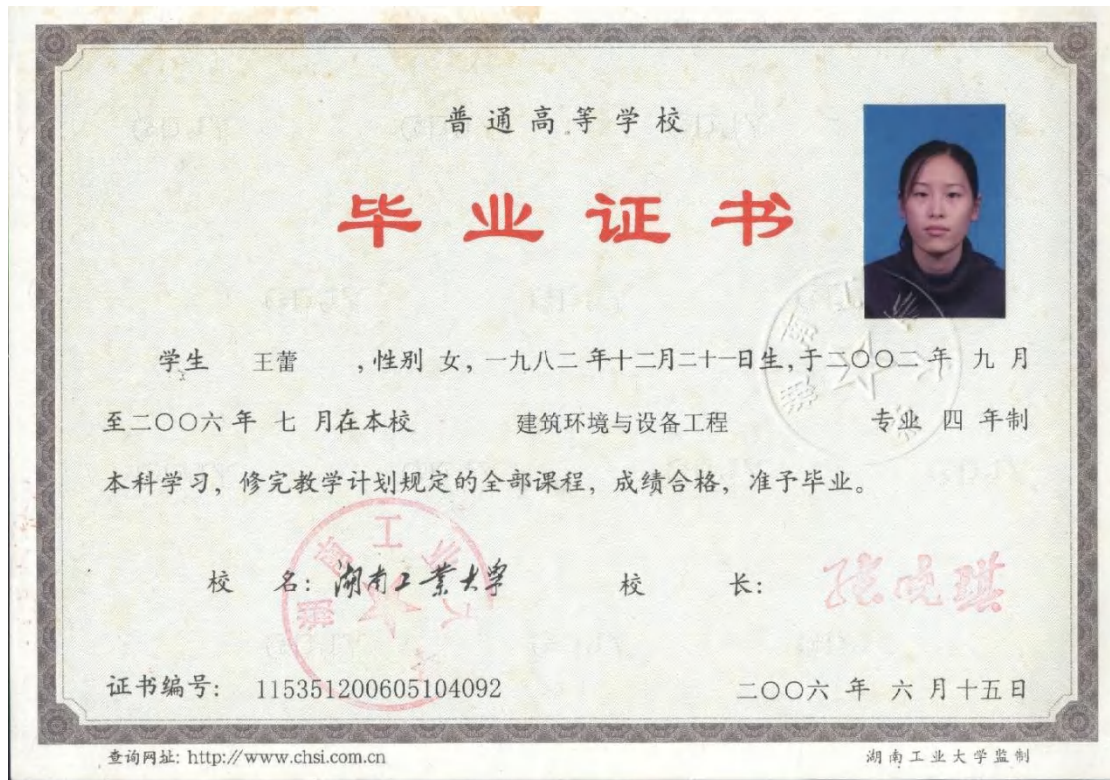 普通高等学校
毕业证书
学生 王蕾 ，性别 女，一九八二 年十二月二十一日生，于二〇〇二 年 九 月
至二〇〇六 年 七 月在本校 建筑环境与设备工程 专业 四 年制
本科学习，修完教学计划规定的全部课程，成绩合格，准予毕业。
湖南工业大学
校 名：湖南工業大学 校 长：张晓琪
证书编号： 115351200605104092 二〇〇六 年 六 月十五日
查询网址: http://www.chsi.com.cn 湖南工业大学监制